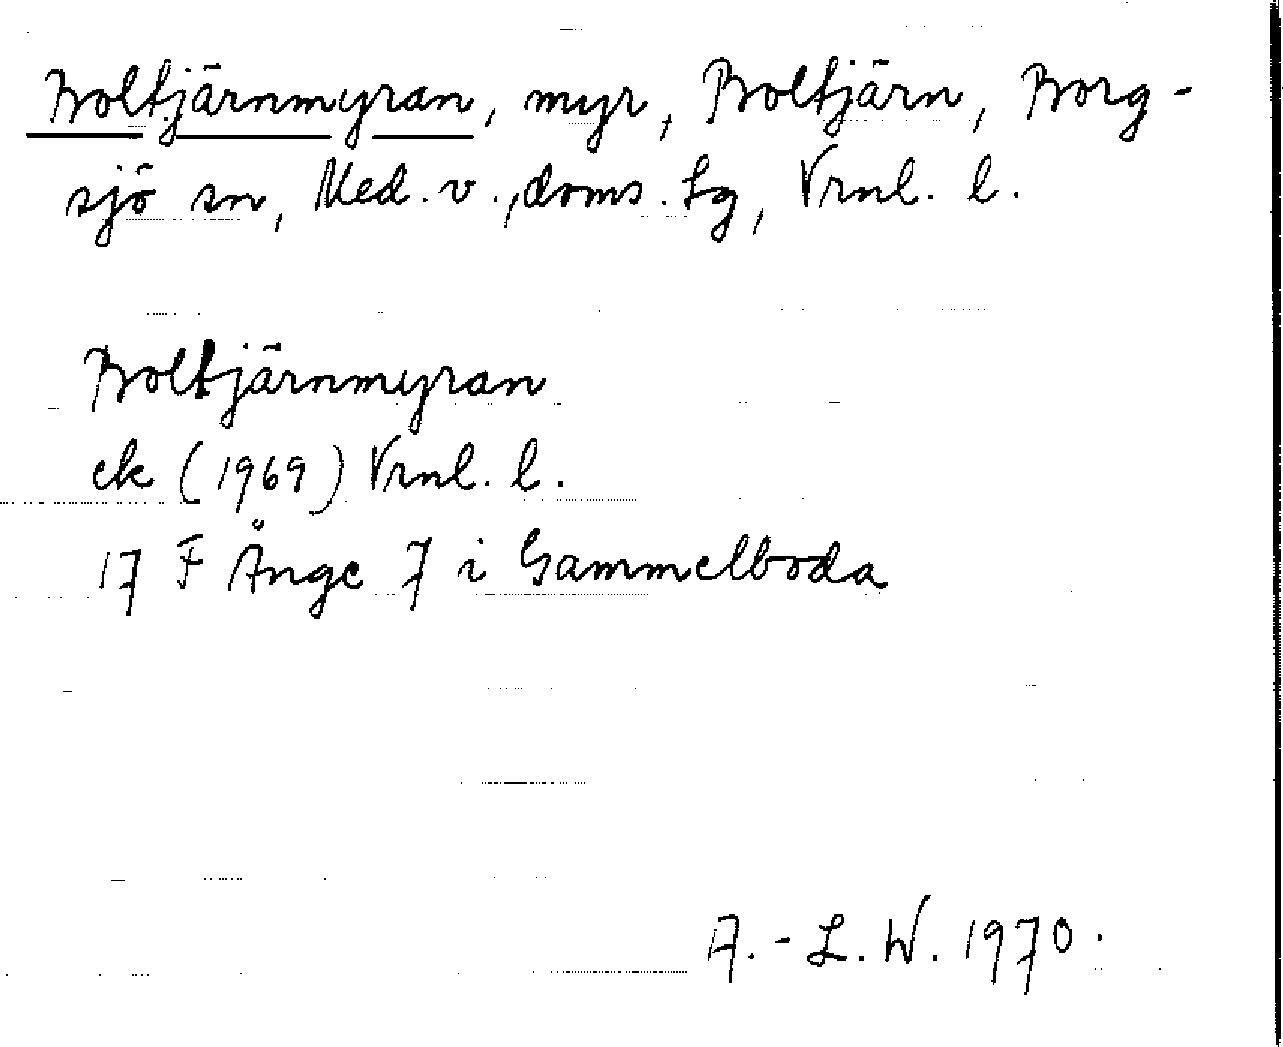 Boltjärnmyran, myr, Boltjärn, Borg-
sjö sn, Med. v., doms. Lg, Vrnl. l.
Boltjärnmyran
ek (1969) Vrnl. l.
17 F Ånge 7 i Gammelboda
A.-L. W. 1970.